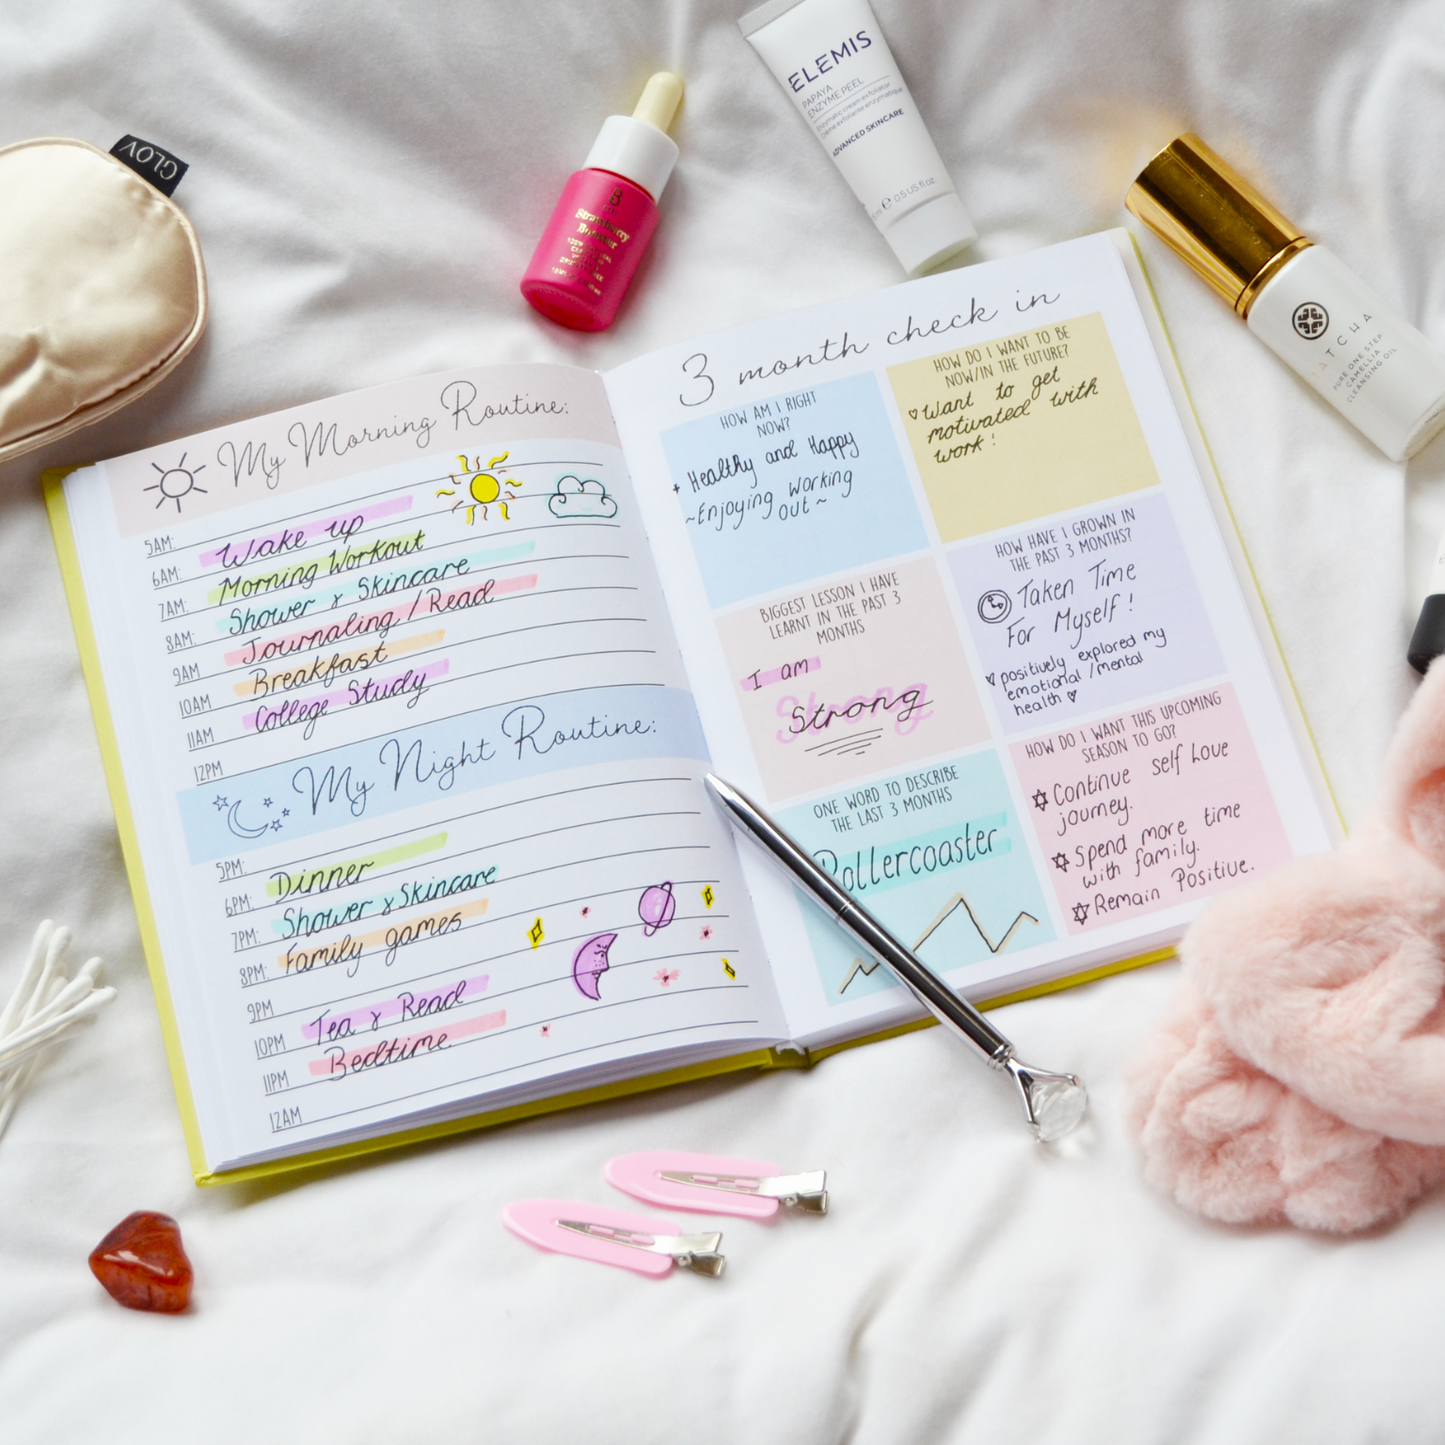 GLOV
Strawberry
Booster
ELEMIS
PAPAYA
ENZYME PEEL
Enzymatic cream exfoliator
Crème exfoliante enzymatique
ADVANCED SKINCARE
0.5 US fl.oz.
TCHA
PURE ONE STEP
CAMELLIA
CLEANSING OIL
My Morning Routine:
5AM: Wake up
6AM: Morning Workout
7AM: Shower & Skincare
8AM: Journaling / Read
9AM Breakfast
10AM College Study
11AM
12PM
My Night Routine:
5PM: Dinner
6PM: Shower & Skincare
7PM: Family games
8PM:
9PM Tea & Read
10PM Bedtime.
11PM
12AM
3 month check in
HOW AM I RIGHT
NOW?
Healthy and Happy
~Enjoying working
out~
HOW DO I WANT TO BE
NOW/IN THE FUTURE?
♡ Want to get
motivated with
work!
BIGGEST LESSON I HAVE
LEARNT IN THE PAST 3
MONTHS
I am
Strong
HOW HAVE I GROWN IN
THE PAST 3 MONTHS?
Taken Time
For Myself!
♡ positively explored my
emotional / mental
health ♡
ONE WORD TO DESCRIBE
THE LAST 3 MONTHS
Rollercoaster
HOW DO I WANT THIS UPCOMING
SEASON TO GO?
✡ Continue self love
journey.
✡ Spend more time
with family.
✡ Remain Positive.